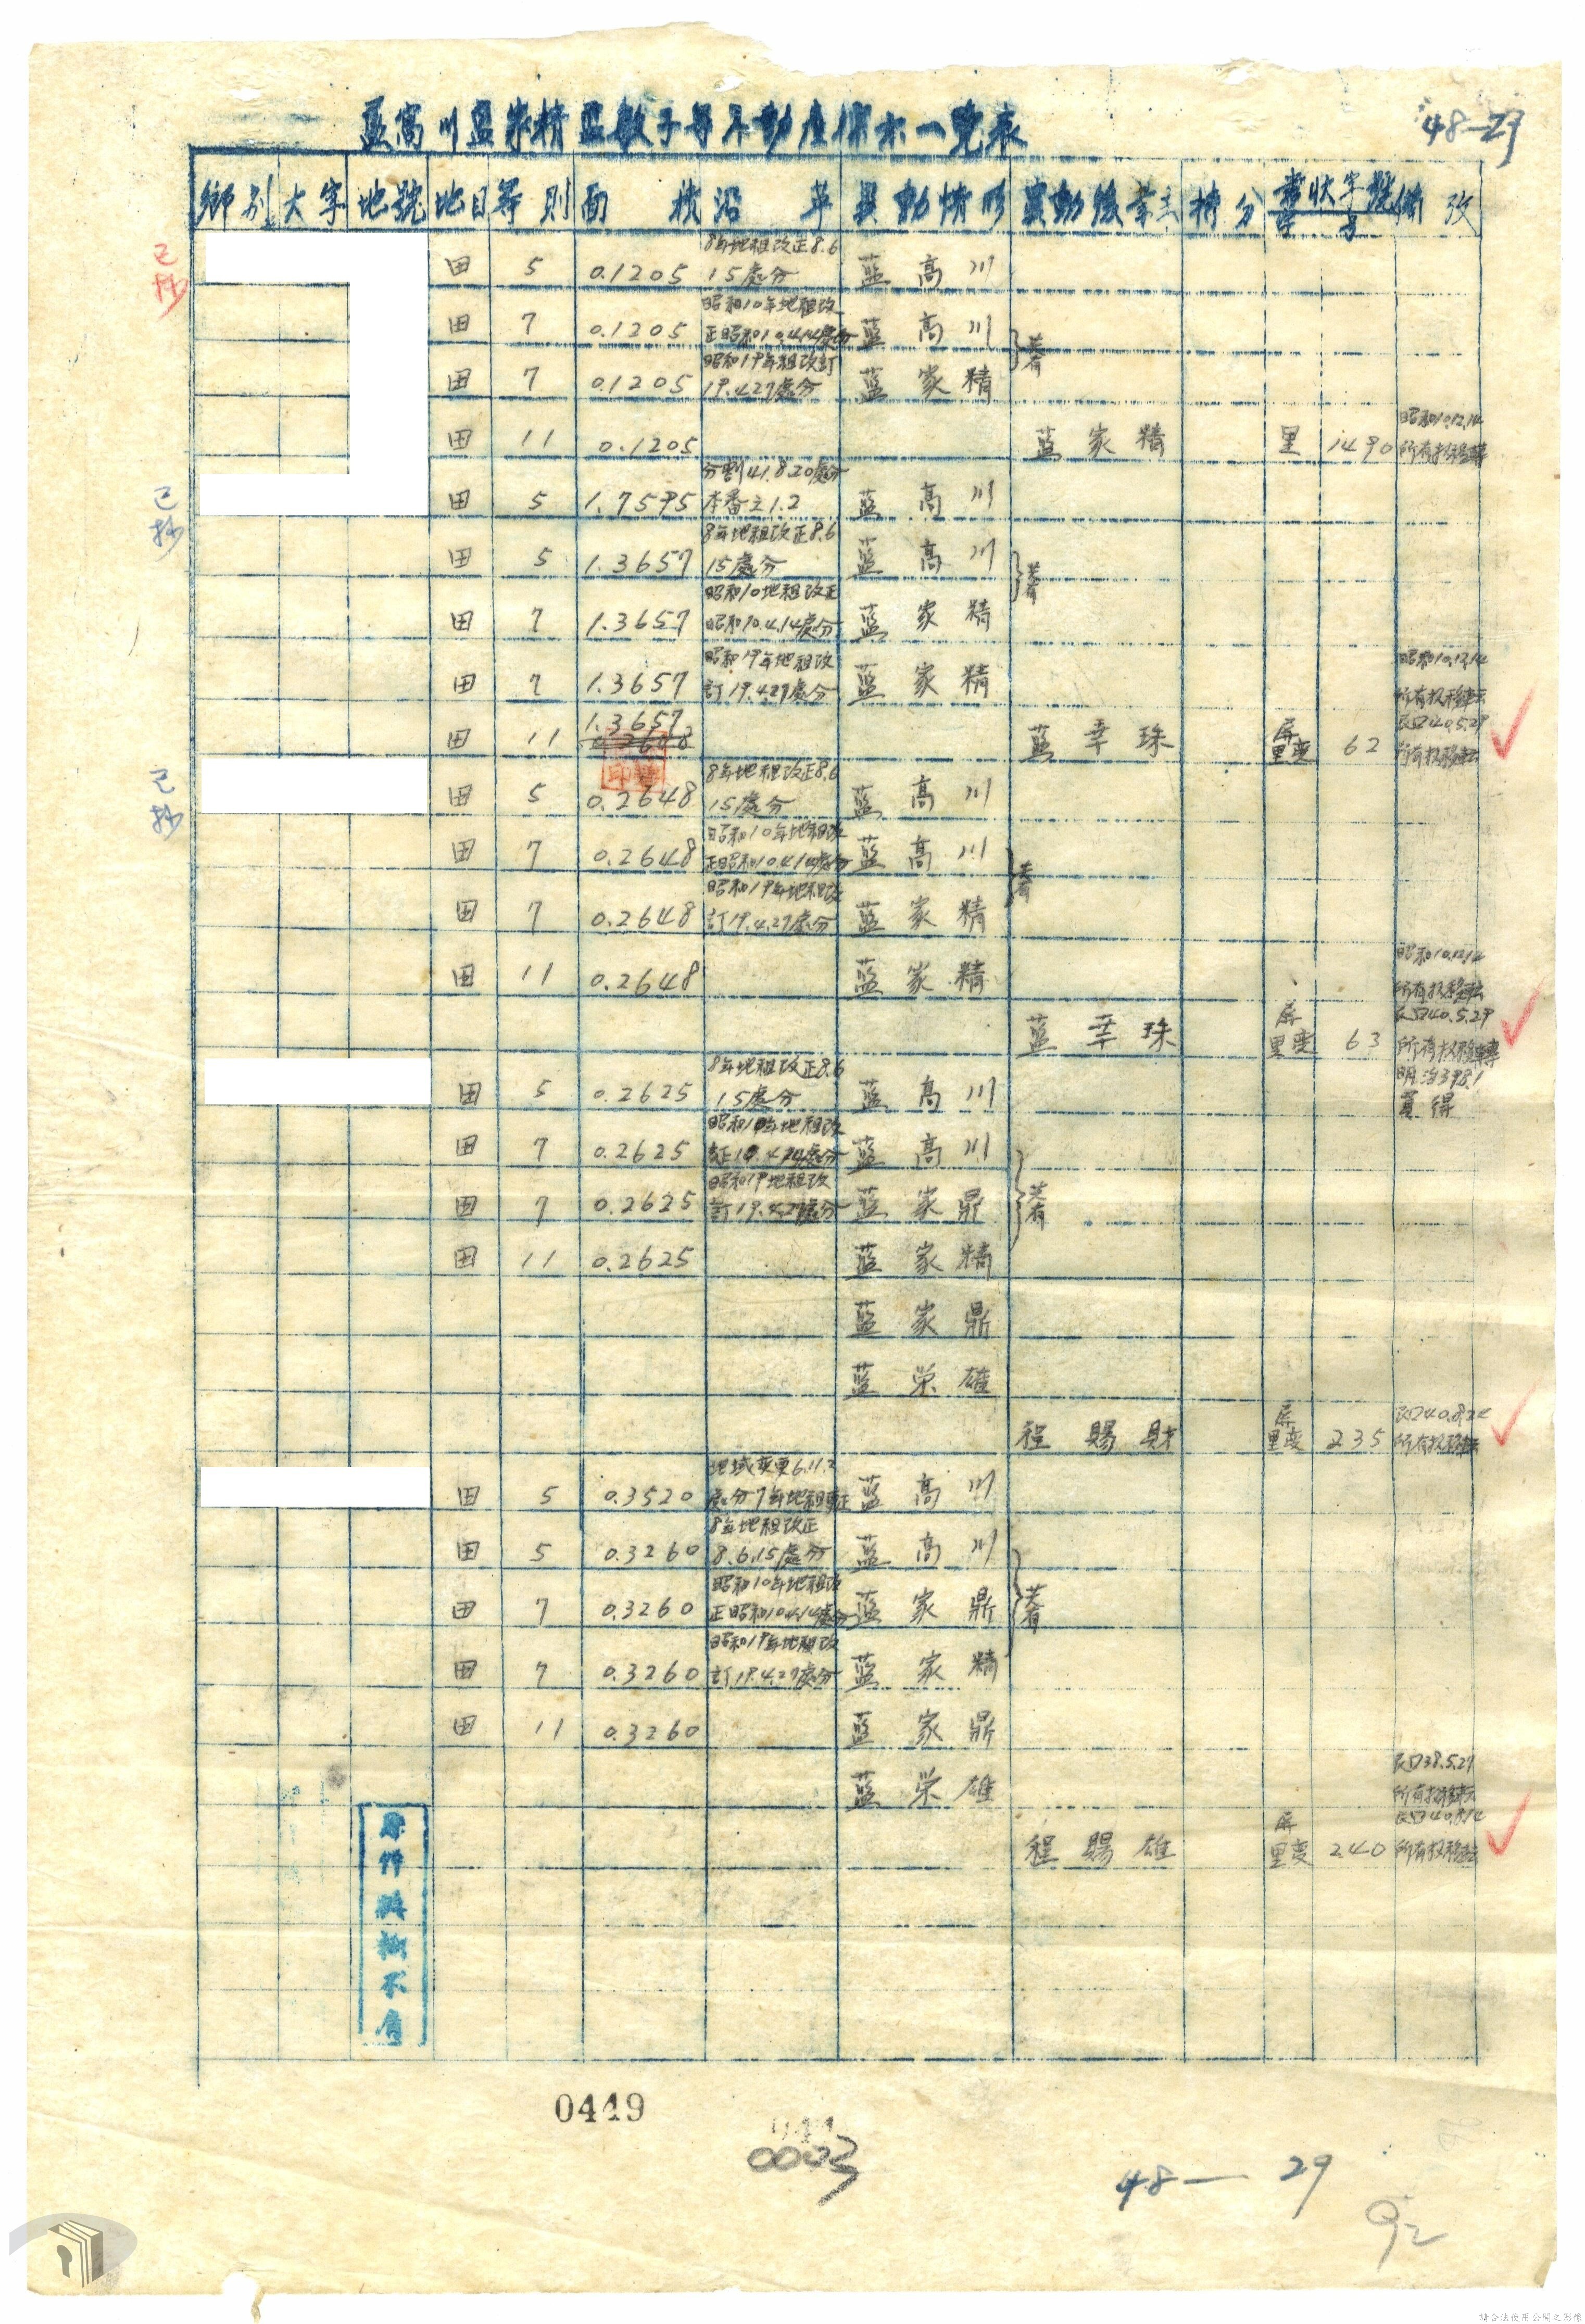 藍高川藍家精藍敏子等不動產標示一覽表
48-29
鄉別 大字 地號 地目 等則 面積 沿革 異動情形 異動後業主 持分 書狀字號 備攷
已抄
8年地租改正8.6
田 5 0.1205 15處分 藍高川
昭和10年地租改
田 7 0.1205 正昭和10.4.14處分 藍高川
共有
昭和19年租改訂
田 7 0.1205 19.4.27處分 藍家精
昭和10.12.14
田 11 0.1205 藍家精 里 1490 所有權移轉
已抄
分割41.8.20處分
田 5 1.7595 本番之1.2 藍高川
8年地租改正8.6
田 5 1.3657 15處分 藍高川
共有
昭和10地租改正
田 7 1.3657 昭和10.4.14處分 藍家精
昭和19年地租改
田 7 1.3657 訂19.4.27處分 藍家精
昭和10.12.14
所有权移轉
1.3657
民国40.5.29
田 11 藍幸珠 屏里变 62 所有权移轉
已抄
8年地租改正8.6
田 5 0.2648 15處分 藍高川
昭和10年地租改
田 7 0.2648 正昭和10.4.14處分 藍高川
共有
昭和19年地租改
田 7 0.2648 訂19.4.27處分 藍家精
昭和10.12.14
田 11 0.2648 藍家精 所有权移轉
民国40.5.29
藍幸珠 屏里变 63 所有权移轉
8年地租改正8.6
明治39.8.1
田 5 0.2625 15處分 藍高川 買得
昭和10年地租改
田 7 0.2625 正10.4.14處分 藍高川
昭和19地租改
共有
田 7 0.2625 訂19.4.27處分 藍家鼎
田 11 0.2625 藍家精
藍家鼎
藍栄雄
民口40.8.24
程賜財 屏里变 235 所有权移轉
地域变更6.11.2
田 5 0.3520 處分7年地租改正 藍高川
8年地租改正
田 5 0.3260 8.6.15處分 藍高川
昭和10年地租改
共有
田 7 0.3260 正昭和10.4.14處分 藍家鼎
昭和19年地租改
田 7 0.3260 訂19.4.27處分 藍家精
田 11 0.3260 藍家鼎
民口38.5.27
藍栄雄 所有权移轉
民国40.8.14
程賜雄 屏里变 240 所有权移轉
原件模糊不清
0449
0003
48— 29
92
請合法使用公開之影像